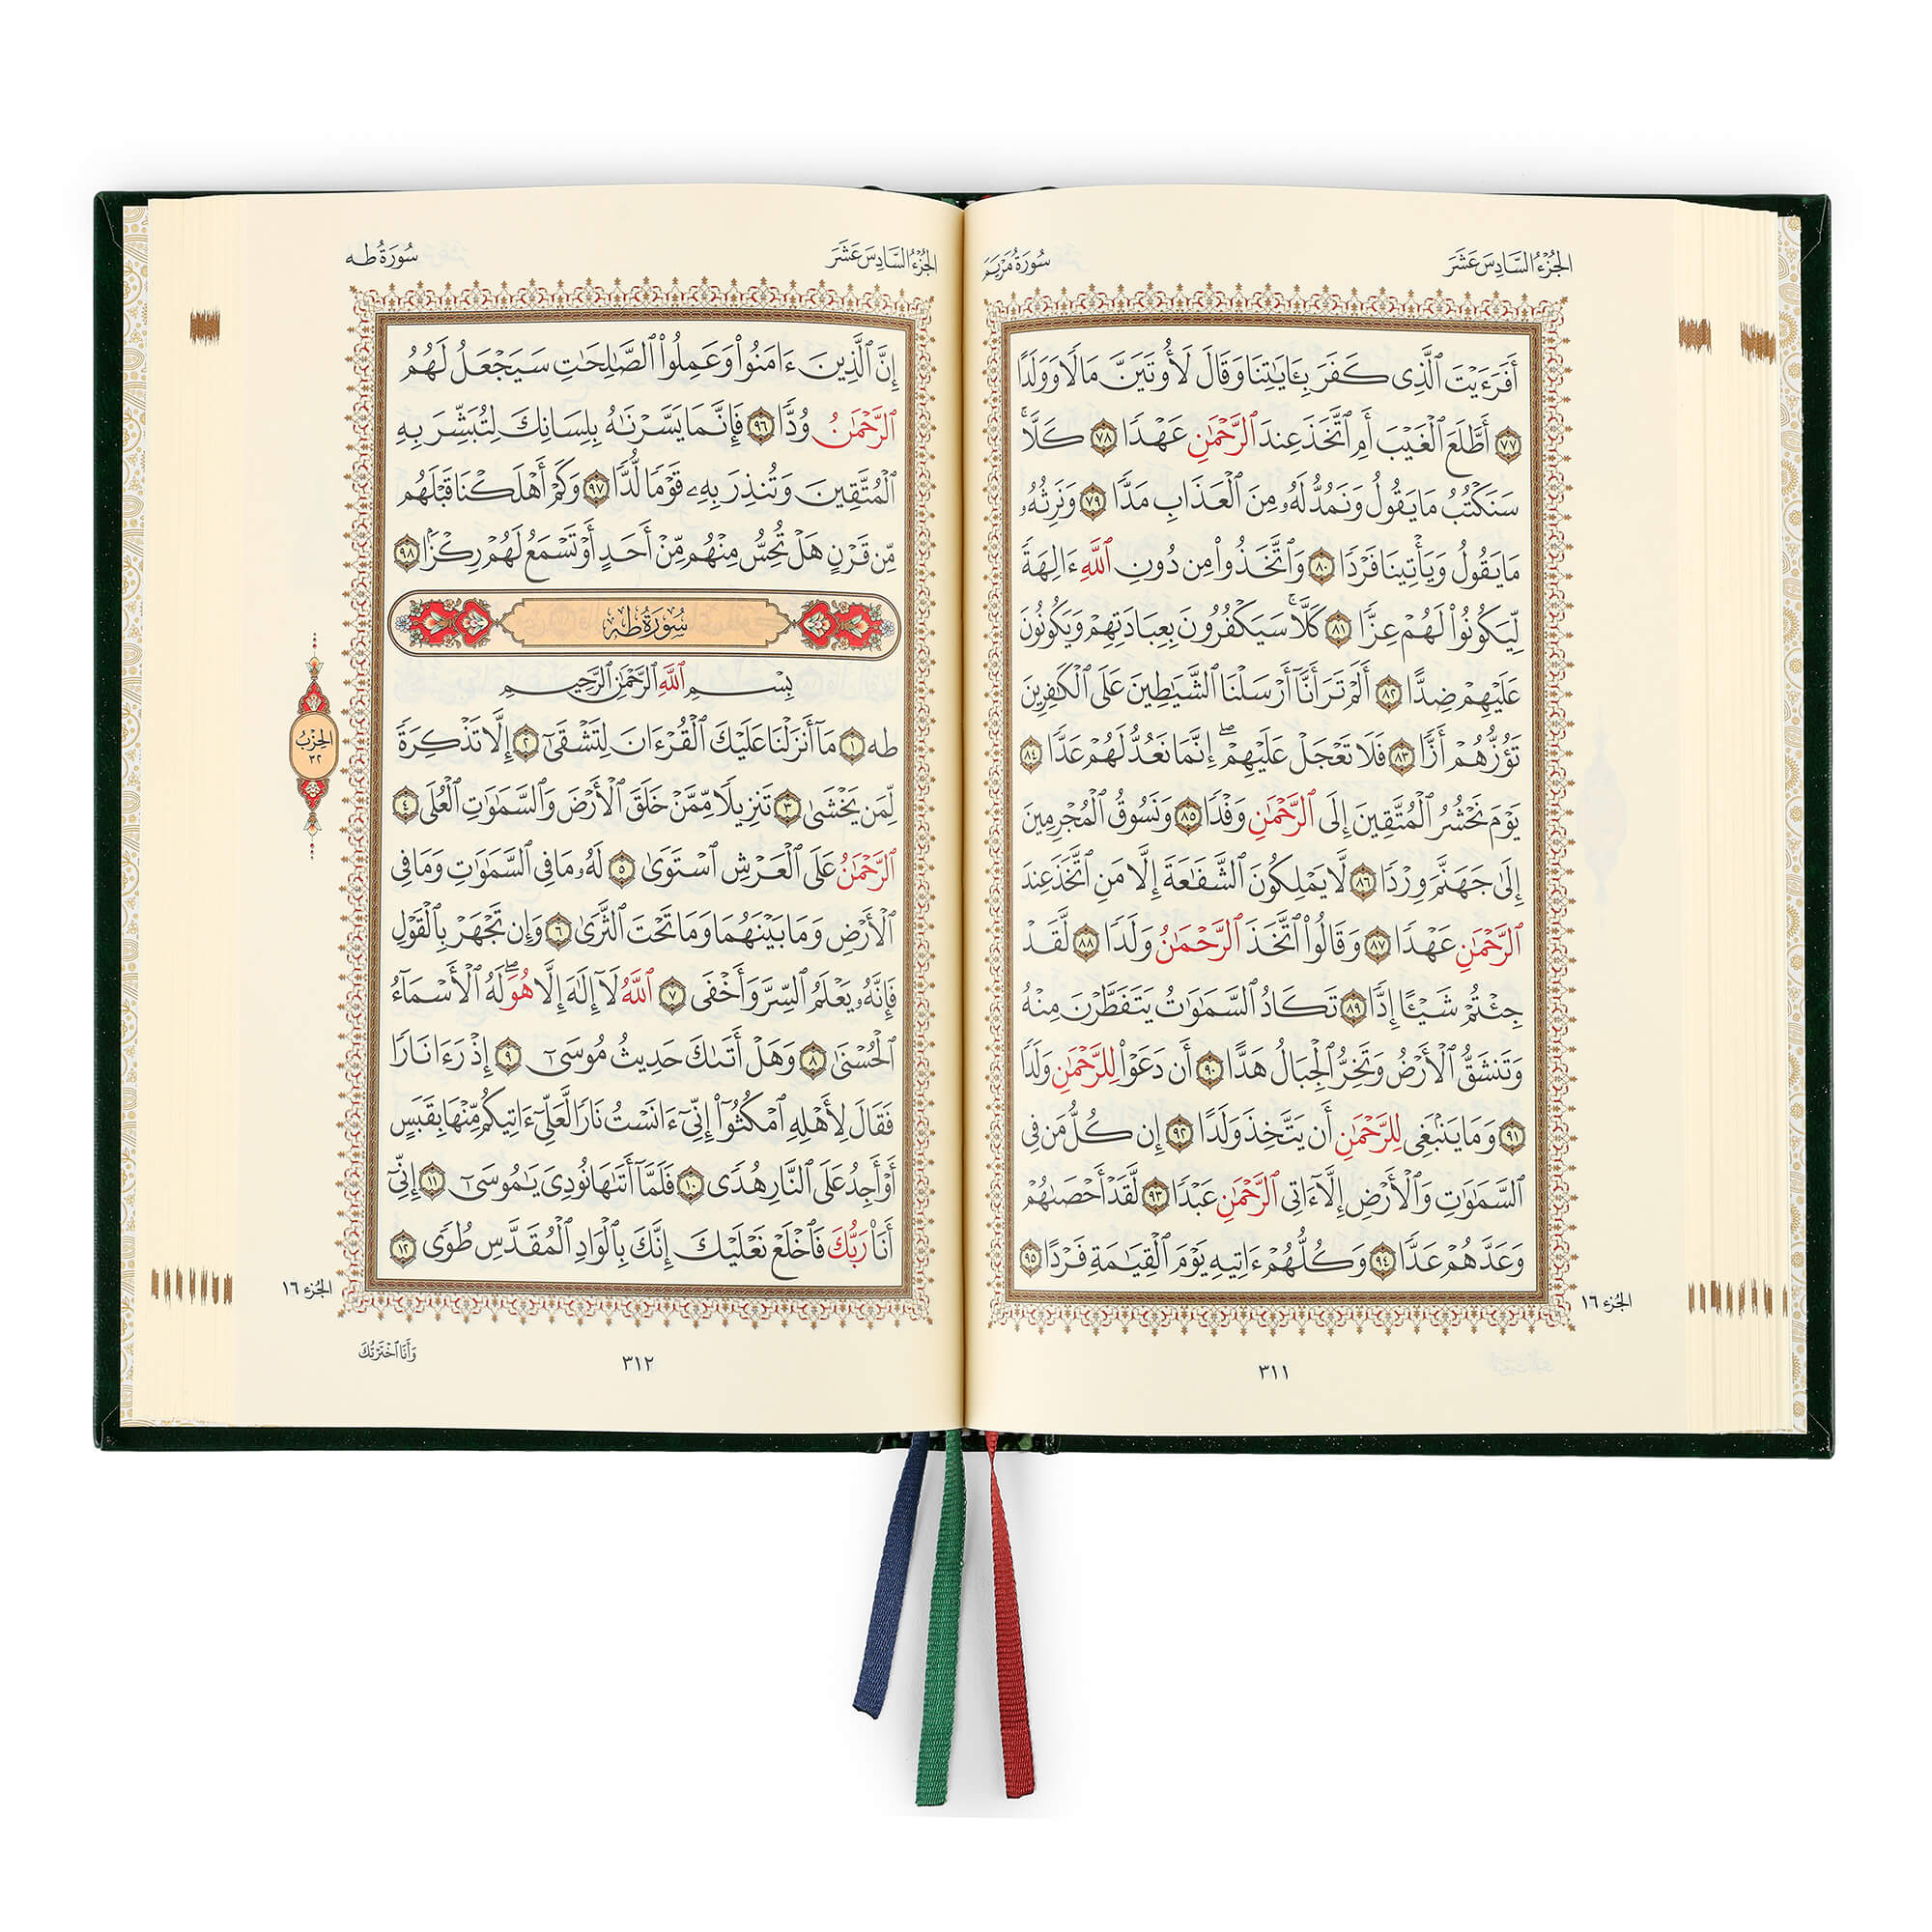 الجُزْءُ السَّادِسَ عَشَرَ
سُورَةُ مَرْيَمَ
أَفَرَءَيْتَ ٱلَّذِى كَفَرَ بِـَٔايَٰتِنَا وَقَالَ لَأُوتَيَنَّ مَالًا وَوَلَدًا
٧٧ أَطَّلَعَ ٱلْغَيْبَ أَمِ ٱتَّخَذَ عِندَ ٱلرَّحْمَٰنِ عَهْدًا ٧٨ كَلَّا ۚ
سَنَكْتُبُ مَا يَقُولُ وَنَمُدُّ لَهُۥ مِنَ ٱلْعَذَابِ مَدًّا ٧٩ وَنَرِثُهُۥ
مَا يَقُولُ وَيَأْتِينَا فَرْدًا ٨٠ وَٱتَّخَذُوا۟ مِن دُونِ ٱللَّهِ ءَالِهَةً
لِّيَكُونُوا۟ لَهُمْ عِزًّا ٨١ كَلَّا ۚ سَيَكْفُرُونَ بِعِبَادَتِهِمْ وَيَكُونُونَ
عَلَيْهِمْ ضِدًّا ٨٢ أَلَمْ تَرَ أَنَّآ أَرْسَلْنَا ٱلشَّيَٰطِينَ عَلَى ٱلْكَٰفِرِينَ
تَؤُزُّهُمْ أَزًّا ٨٣ فَلَا تَعْجَلْ عَلَيْهِمْ ۖ إِنَّمَا نَعُدُّ لَهُمْ عَدًّا ٨٤
يَوْمَ نَحْشُرُ ٱلْمُتَّقِينَ إِلَى ٱلرَّحْمَٰنِ وَفْدًا ٨٥ وَنَسُوقُ ٱلْمُجْرِمِينَ
إِلَىٰ جَهَنَّمَ وِرْدًا ٨٦ لَّا يَمْلِكُونَ ٱلشَّفَٰعَةَ إِلَّا مَنِ ٱتَّخَذَ عِندَ
ٱلرَّحْمَٰنِ عَهْدًا ٨٧ وَقَالُوا۟ ٱتَّخَذَ ٱلرَّحْمَٰنُ وَلَدًا ٨٨ لَّقَدْ
جِئْتُمْ شَيْـًٔا إِدًّا ٨٩ تَكَادُ ٱلسَّمَٰوَٰتُ يَتَفَطَّرْنَ مِنْهُ
وَتَنشَقُّ ٱلْأَرْضُ وَتَخِرُّ ٱلْجِبَالُ هَدًّا ٩٠ أَن دَعَوْا۟ لِلرَّحْمَٰنِ وَلَدًا
٩١ وَمَا يَنۢبَغِى لِلرَّحْمَٰنِ أَن يَتَّخِذَ وَلَدًا ٩٢ إِن كُلُّ مَن فِى
ٱلسَّمَٰوَٰتِ وَٱلْأَرْضِ إِلَّآ ءَاتِى ٱلرَّحْمَٰنِ عَبْدًا ٩٣ لَّقَدْ أَحْصَىٰهُمْ
وَعَدَّهُمْ عَدًّا ٩٤ وَكُلُّهُمْ ءَاتِيهِ يَوْمَ ٱلْقِيَٰمَةِ فَرْدًا ٩٥
الجُزء ١٦
٣١١
الجُزْءُ السَّادِسَ عَشَرَ
سُورَةُ طه
إِنَّ ٱلَّذِينَ ءَامَنُوا۟ وَعَمِلُوا۟ ٱلصَّٰلِحَٰتِ سَيَجْعَلُ لَهُمُ
ٱلرَّحْمَٰنُ وُدًّا ٩٦ فَإِنَّمَا يَسَّرْنَٰهُ بِلِسَانِكَ لِتُبَشِّرَ بِهِ
ٱلْمُتَّقِينَ وَتُنذِرَ بِهِۦ قَوْمًا لُّدًّا ٩٧ وَكَمْ أَهْلَكْنَا قَبْلَهُم
مِّن قَرْنٍ هَلْ تُحِسُّ مِنْهُم مِّنْ أَحَدٍ أَوْ تَسْمَعُ لَهُمْ رِكْزًۢا ٩٨
سُورَةُ طه
بِسْمِ ٱللَّهِ ٱلرَّحْمَٰنِ ٱلرَّحِيمِ
طه ١ مَآ أَنزَلْنَا عَلَيْكَ ٱلْقُرْءَانَ لِتَشْقَىٰٓ ٢ إِلَّا تَذْكِرَةً
لِّمَن يَخْشَىٰ ٣ تَنزِيلًا مِّمَّنْ خَلَقَ ٱلْأَرْضَ وَٱلسَّمَٰوَٰتِ ٱلْعُلَى ٤
ٱلرَّحْمَٰنُ عَلَى ٱلْعَرْشِ ٱسْتَوَىٰ ٥ لَهُۥ مَا فِى ٱلسَّمَٰوَٰتِ وَمَا فِى
ٱلْأَرْضِ وَمَا بَيْنَهُمَا وَمَا تَحْتَ ٱلثَّرَىٰ ٦ وَإِن تَجْهَرْ بِٱلْقَوْلِ
فَإِنَّهُۥ يَعْلَمُ ٱلسِّرَّ وَأَخْفَى ٧ ٱللَّهُ لَآ إِلَٰهَ إِلَّا هُوَ ۖ لَهُ ٱلْأَسْمَآءُ
ٱلْحُسْنَىٰ ٨ وَهَلْ أَتَىٰكَ حَدِيثُ مُوسَىٰٓ ٩ إِذْ رَءَا نَارًا
فَقَالَ لِأَهْلِهِ ٱمْكُثُوٓا۟ إِنِّىٓ ءَانَسْتُ نَارًا لَّعَلِّىٓ ءَاتِيكُم مِّنْهَا بِقَبَسٍ
أَوْ أَجِدُ عَلَى ٱلنَّارِ هُدًى ١٠ فَلَمَّآ أَتَىٰهَا نُودِىَ يَٰمُوسَىٰٓ ١١ إِنِّىٓ
أَنَا۠ رَبُّكَ فَٱخْلَعْ نَعْلَيْكَ إِنَّكَ بِٱلْوَادِ ٱلْمُقَدَّسِ طُوًى ١٢
الحِزْبُ
٣٢
الجُزء ١٦
وَأَنَا ٱخْتَرْتُكَ
٣١٢